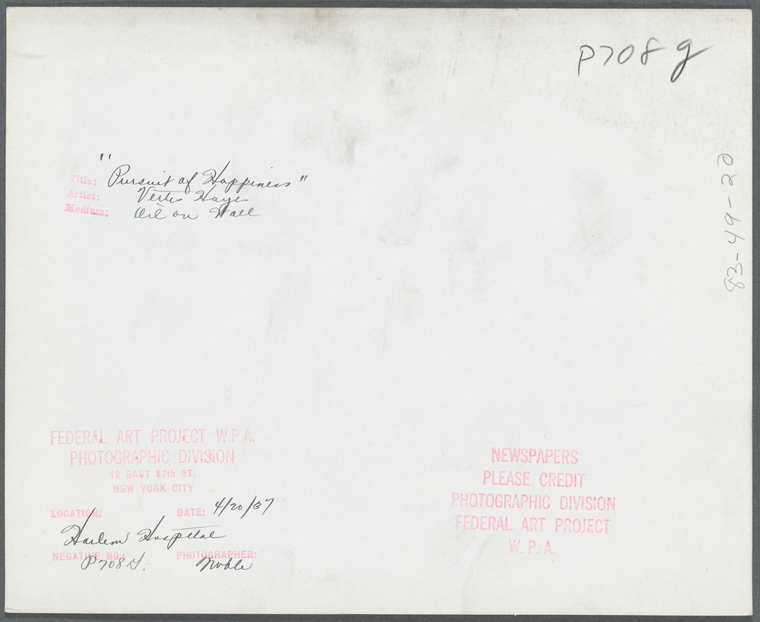 P708g
83-49-20
Title: "Pursuit of Happiness"
Artist: Vertis Hayes
Medium: Oil on Wall
FEDERAL ART PROJECT W.P.A.
PHOTOGRAPHIC DIVISION
NEW YORK CITY
LOCATION: DATE: 4/20/37
Harlem Hospital
NEGATIVE NO.: PHOTOGRAPHER:
Noble
NEWSPAPERS
PLEASE CREDIT
PHOTOGRAPHIC DIVISION
FEDERAL ART PROJECT
W.P.A.